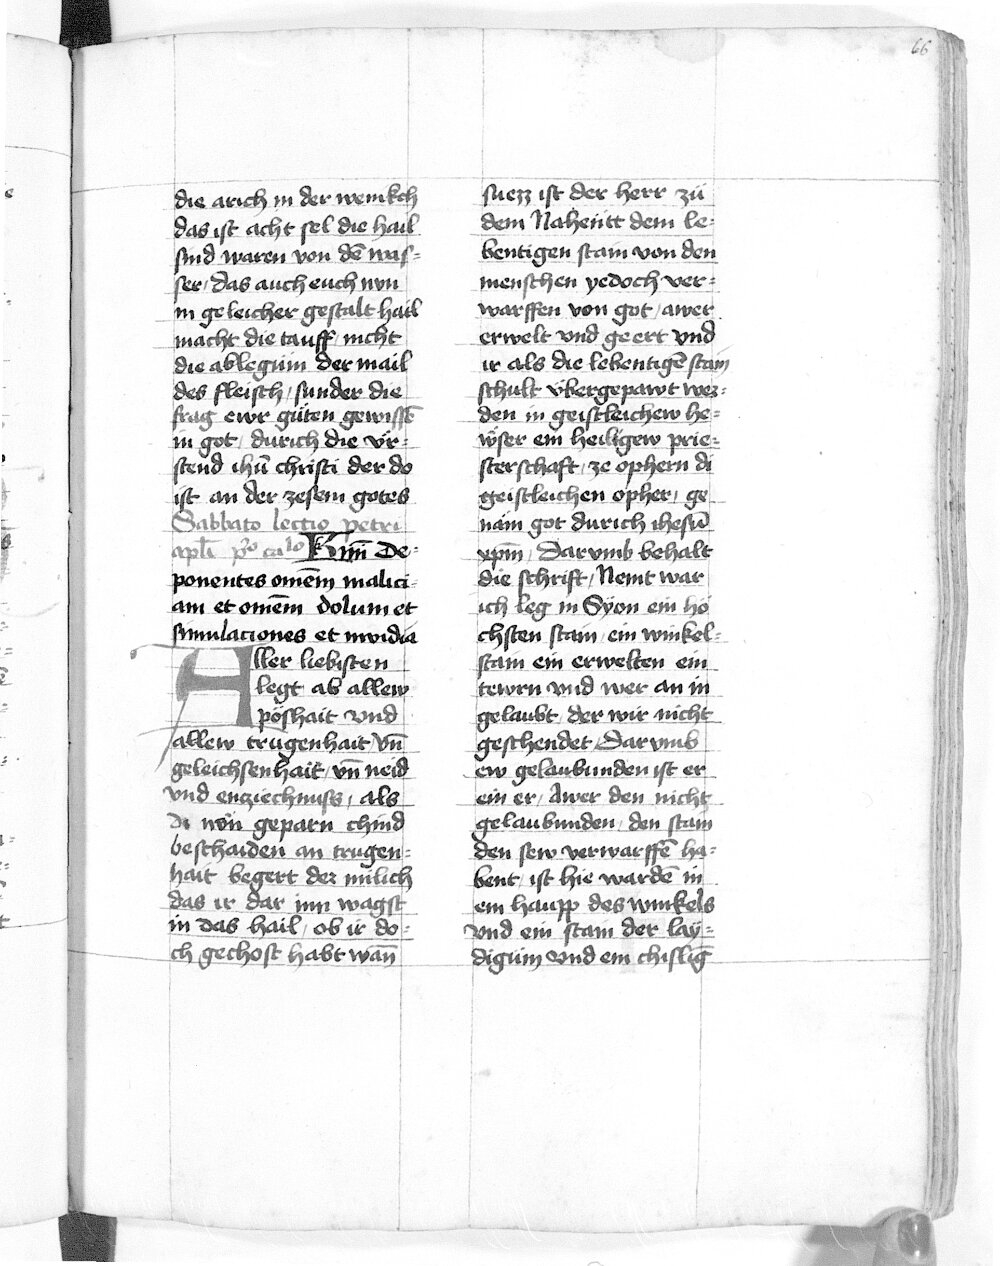 66
die arich in der wenikch
das ist acht sel die hail
sind waren von dē was-
ser das auch euch nvn
in geleicher gestalt hail
macht die tauff nicht
die ablegūm der mail
des fleisch sunder die
frag ewr güten gewissē
in got durich die vr-
stend ihū christi der do
ist an der zesem gotes
Sabbato lectio petri
apłi pº caº Kmi De-
ponentes omēm malici-
am et omēm dolum et
simulaciones et invidia
Aller liebisten
legt ab allew
pöshait vnd
allew trugenhait vn̄
geleichsenhait vn̄ neid
vnd enziechnuss als
di nvn geparn chind
beschaiden an trugen-
hait begert der milich
das ir dar inn wagst
in das hail ob ir do-
ch gechost habt wan̄
suezz ist der herr zü
dem Nahentt dem le-
bentigen stain von den
menschen yedoch ver-
warffen von got awer
erwelt vnd geert vnd
ir als die lebentigē stain
schult vbergepawt wer-
den in geistleichew he-
wser ein heiligew prie-
sterschaft ze ophern di
geistleichen opher ge
nām got durich ihesū
xpm̄ Darvmb behalt
die schrift Nemt war
ich leg in Syon ein hö
chsten stain ein winkel-
stain ein erwelten ein
tewrn vnd wer an in
gelaubt der wir nicht
geschendet Darvmb
ew gelaubunden ist er
ein er Awer den nicht
gelaubunden den stain
den sew verwarffē ha-
bent ist hie wardē in
ein haupp des winkels
vnd ein stain der lay-
digūm vnd ein chisliḡ